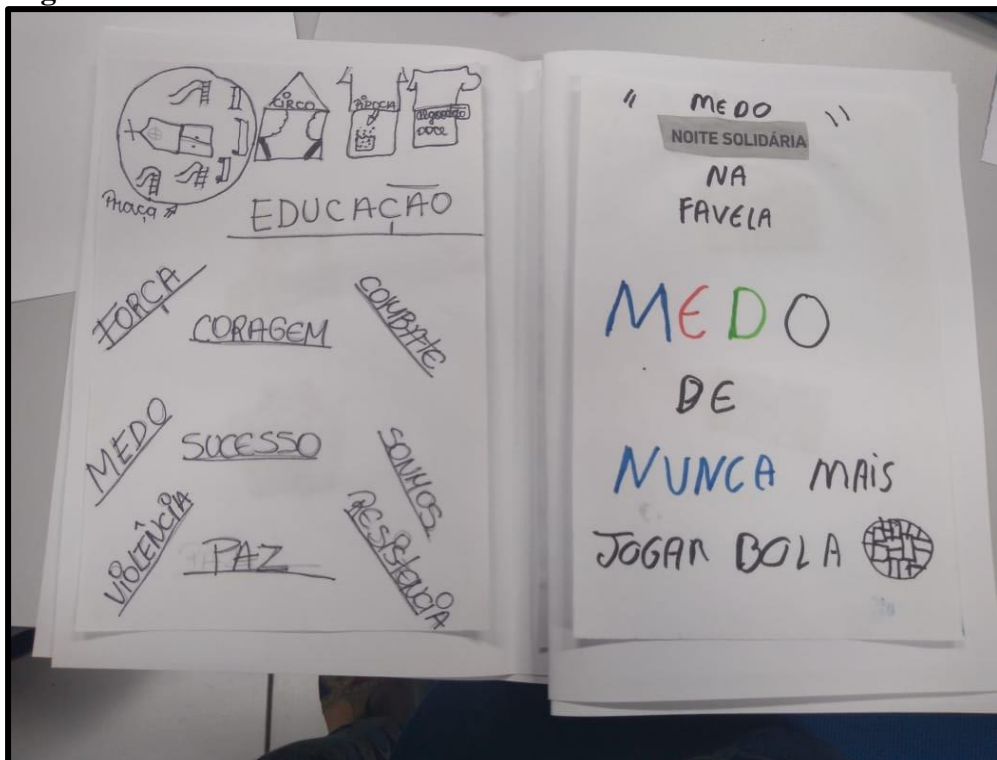 CIRCO
PIPOCA
algodão
DOCE
Praça
EDUCAÇÃO
FORÇA
CORAGEM
COMBATE
MEDO
SUCESSO
SONHOS
VIOLÊNCIA
PAZ
RESISTENCIA
" MEDO "
NOITE SOLIDÁRIA
NA
FAVELA
MEDO
DE
NUNCA MAIS
JOGAR BOLA